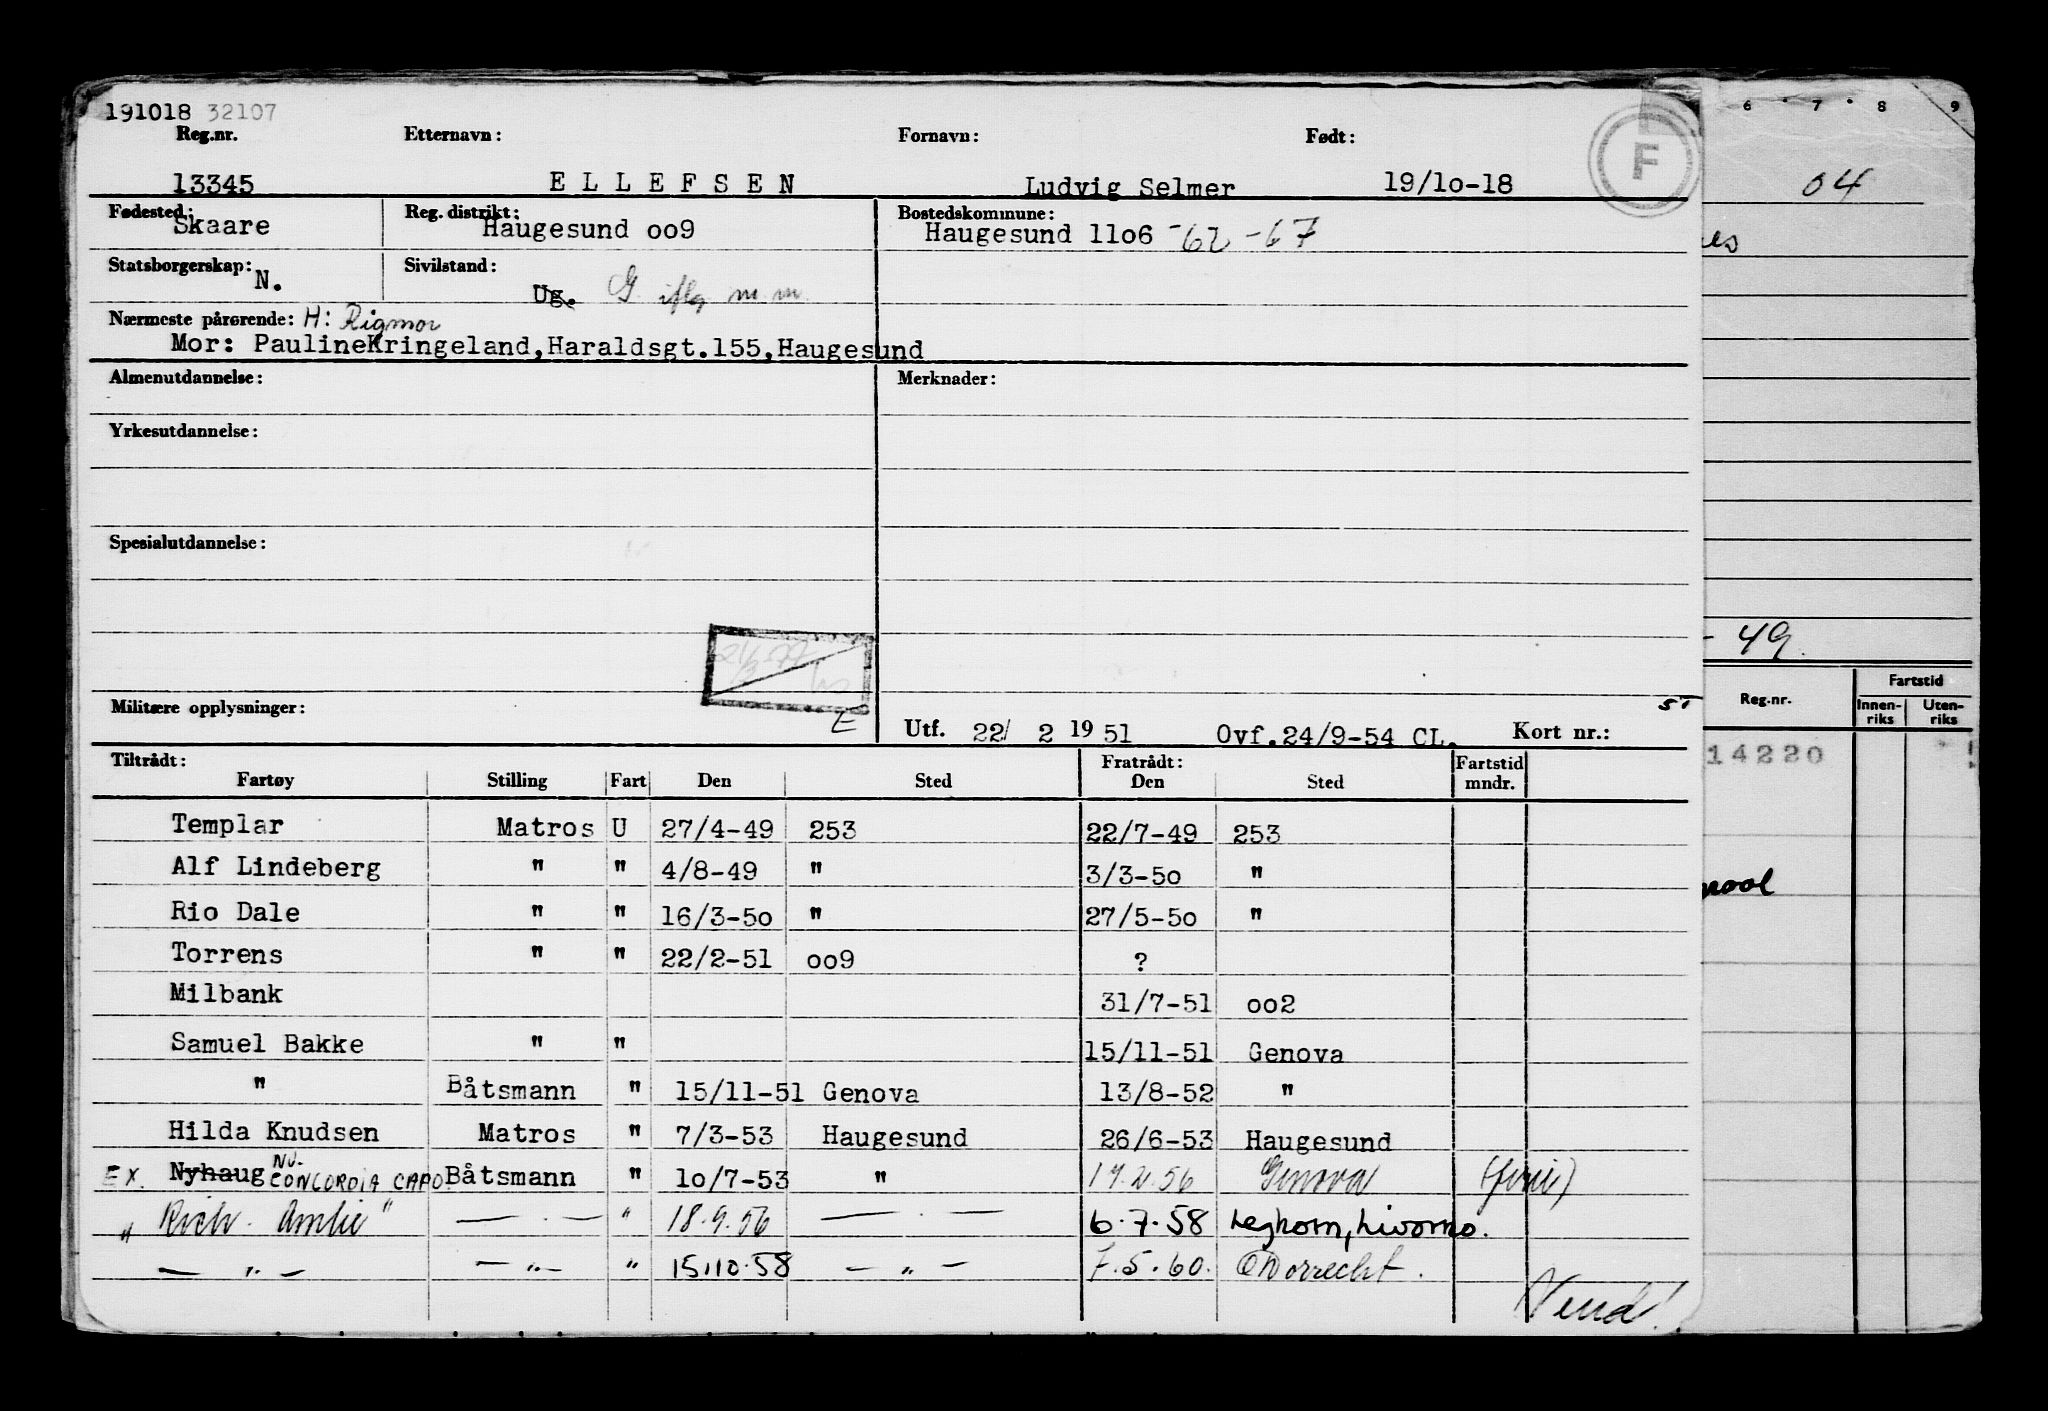 191018 32107
Reg.nr. Etternavn: Fornavn: Født:
13345 ELLEFSEN Ludvig Selmer 19/10-18
F
Fødested: Skaare Reg. distrikt: Haugesund oo9 Bostedskommune: Haugesund 11o6 -62 -67
Statsborgerskap: N. Sivilstand: Ug. G. iflg m.m.
Nærmeste pårørende: H: Rigmor
Mor: PaulineKringeland, Haraldsgt.155, Haugesund
Almenutdannelse: Merknader:
Yrkesutdannelse:
Spesialutdannelse:
Militære opplysninger: E Utf. 22/ 2 19 51 Ovf.24/9-54 CL. Kort nr.:
Tiltrådt: Fratrådt: Fartstid mndr.
Fartøy Stilling Fart Den Sted Den Sted
Templar Matros U 27/4-49 253 22/7-49 253
Alf Lindeberg " " 4/8-49 " 3/3-5o "
Rio Dale " " 16/3-5o " 27/5-5o "
Torrens " " 22/2-51 oo9 ?
Milbank 31/7-51 oo2
Samuel Bakke " " 15/11-51 Genova
" Båtsmann " 15/11-51 Genova 13/8-52 "
Hilda Knudsen Matros " 7/3-53 Haugesund 26/6-53 Haugesund
EX. Nyhaug NU- CONCORDIA CAPO. Båtsmann " 1o/7-53 " 17.2.56 Genova
" Rich. Amlie " — . — " 18.9.56 — . — 6.7.58 Leghorn, Livorno.
— " — — " — " 15.10.58 — " — 7.5.60.
Vend!
6 7 8 9
04
- 49.
Reg.nr. Fartstid
Innen-riks Uten-riks
14220